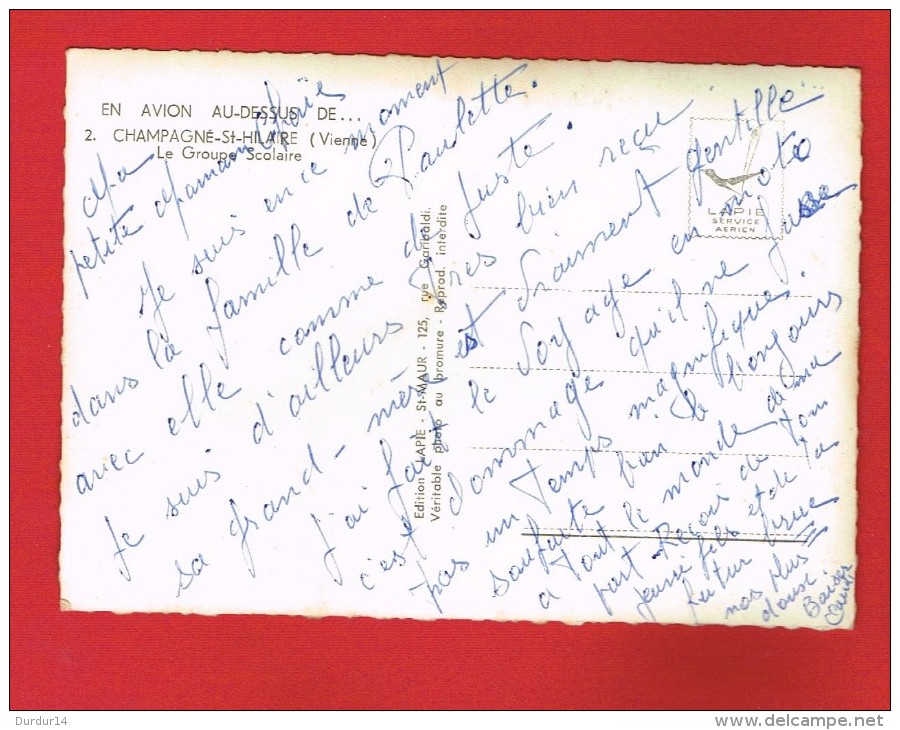 EN AVION AU-DESSUS DE...
2. CHAMPAGNÉ-St-HILAIRE (Vienne)
Le Groupe Scolaire
LAPIE
SERVICE
AERIEN
Edition LAPIE - St-MAUR - 125, rue Garibaldi.
Véritable photo au bromure - Reprod. interdite
Ma
petite Maman
Je suis en ce moment
dans la famille de Paulette.
avec elle comme de juste.
Je suis d'ailleurs très bien reçu
sa grand-mère est vraiment gentille...
J'ai fait le voyage en moto
c'est dommage qu'il ne fasse
pas un temps magnifique.
Souhaite bien le bonjours
a tout le monde de ma
part Reçoit de ton
jeune fils et de ta
futur brue
nos plus
doux
Baiser
Durdur14
www.delcampe.net